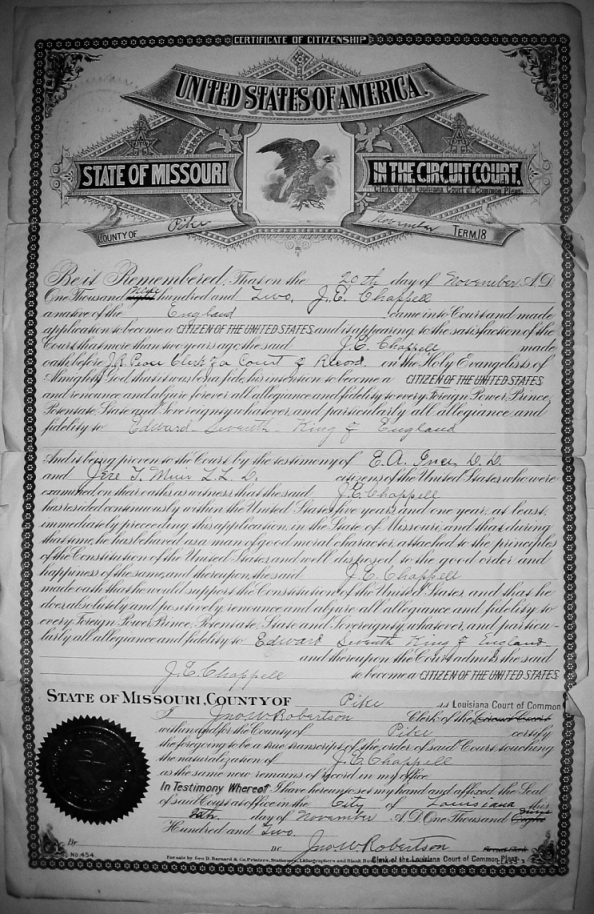 CERTIFICATE OF CITIZENSHIP
UNITED STATES OF AMERICA.
STATE OF MISSOURI
IN THE CIRCUIT COURT.
Clerk of the Louisiana Court of Common Pleas
COUNTY OF Pike
November TERM, 18
Be it Remembered, That on the 20th day of November A.D.
One Thousand eight nine hundred and Two, J.E. Chappell
a native of the England came into Court and made
application to become a CITIZEN OF THE UNITED STATES and it appearing to the satisfaction of the
Court that more than two years ago the said J.E. Chappell made
oath before Clerk of a Court of Record, on the Holy Evangelists of
Almighty God, that it was bona fide, his intention to become a CITIZEN OF THE UNITED STATES
and renounce and abjure forever all allegiance and fidelity to every Foreign Power, Prince,
Potentate, State and Sovereignty whatever, and particularly all allegiance and
fidelity to Edward Seventh King of England
And it being proven to the Court by the testimony of E.A. D.D.
and Jere T. Muir L.L.D. citizens of the United States who were
examined on their oaths as witness that the said J.E. Chappell
has resided continuously within the United States five years, and one year, at least,
immediately preceeding this application, in the State of Missouri, and that during
that time, he has behaved as a man of good moral character, attached to the principles
of the Constitution of the United States and well disposed to the good order and
happiness of the same, and thereupon, the said J.E. Chappell
made oath that he would support the Constitution of the United States and that he
does absolutely and positively renounce and abjure all allegiance and fidelity to
every Foreign Power, Prince, Potentate, State and Sovereignty, whatever, and particu-
larly all allegiance and fidelity to Edward Seventh King of England
and thereupon the Court admits the said
J.E. Chappell to become a CITIZEN OF THE UNITED STATES
STATE OF MISSOURI, COUNTY OF Pike Louisiana Court of Common
I Jno W Robertson Clerk of the Circuit Court
within and for the County of Pike certify
the foregoing to be a true transcript of the order of said Court, touching
the naturalization of J.E. Chappell
as the same now remains of record in my office.
In Testimony Whereof I have hereunto set my hand and affixed the Seal
of said Court at office in the City of Louisiana this
day of November A.D. One Thousand Eight
Hundred and Two.
Jno W Robertson Circuit Clerk
No. 454.
For sale by Geo. D. Barnard & Co. Printers, Stationers, Lithographers and Blank Book
Clerk of the Louisiana Court of Common Pleas